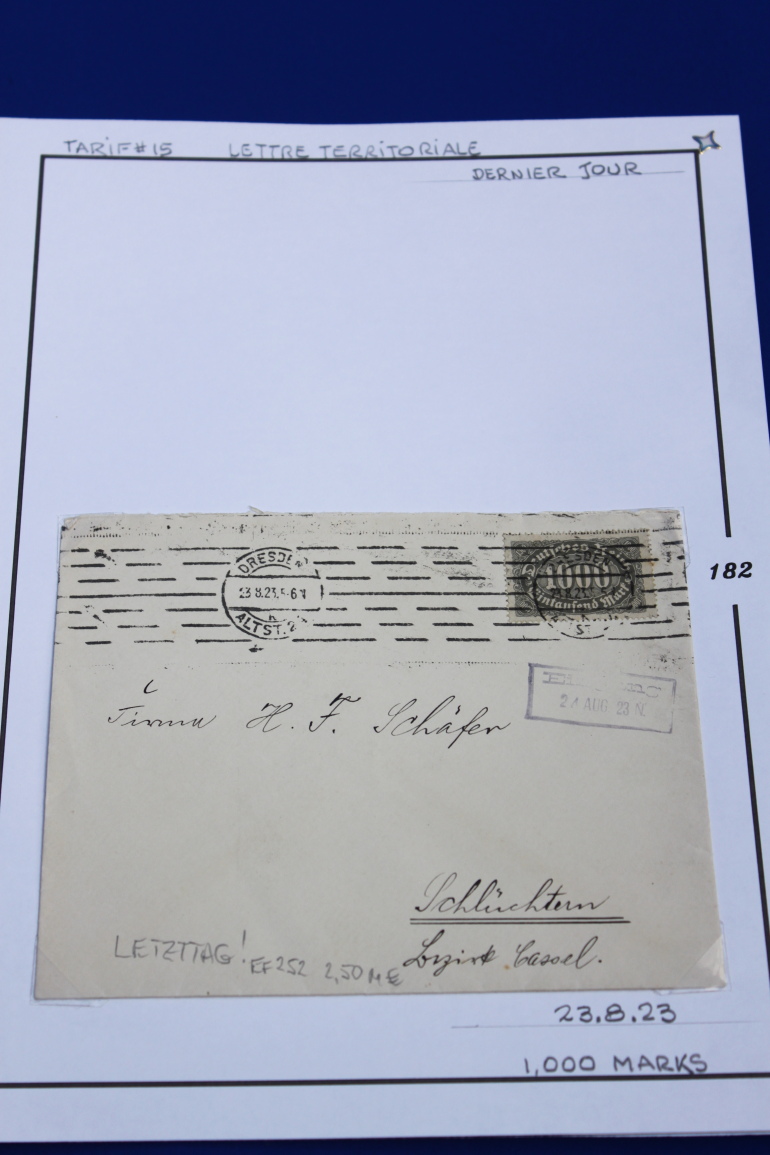 TARIF#15 LETTRE TERRITORIALE
DERNIER JOUR
DRESDEN
23.8.23. 5-6 N
K
ALTST. 24
1000
Eintausend Mark
24 AUG 23
Firma H. F. Schäfer
Schlüchtern
Bezirk Cassel.
LETZTTAG! EF 252 2,50 M€
182
23.8.23
1,000 MARKS